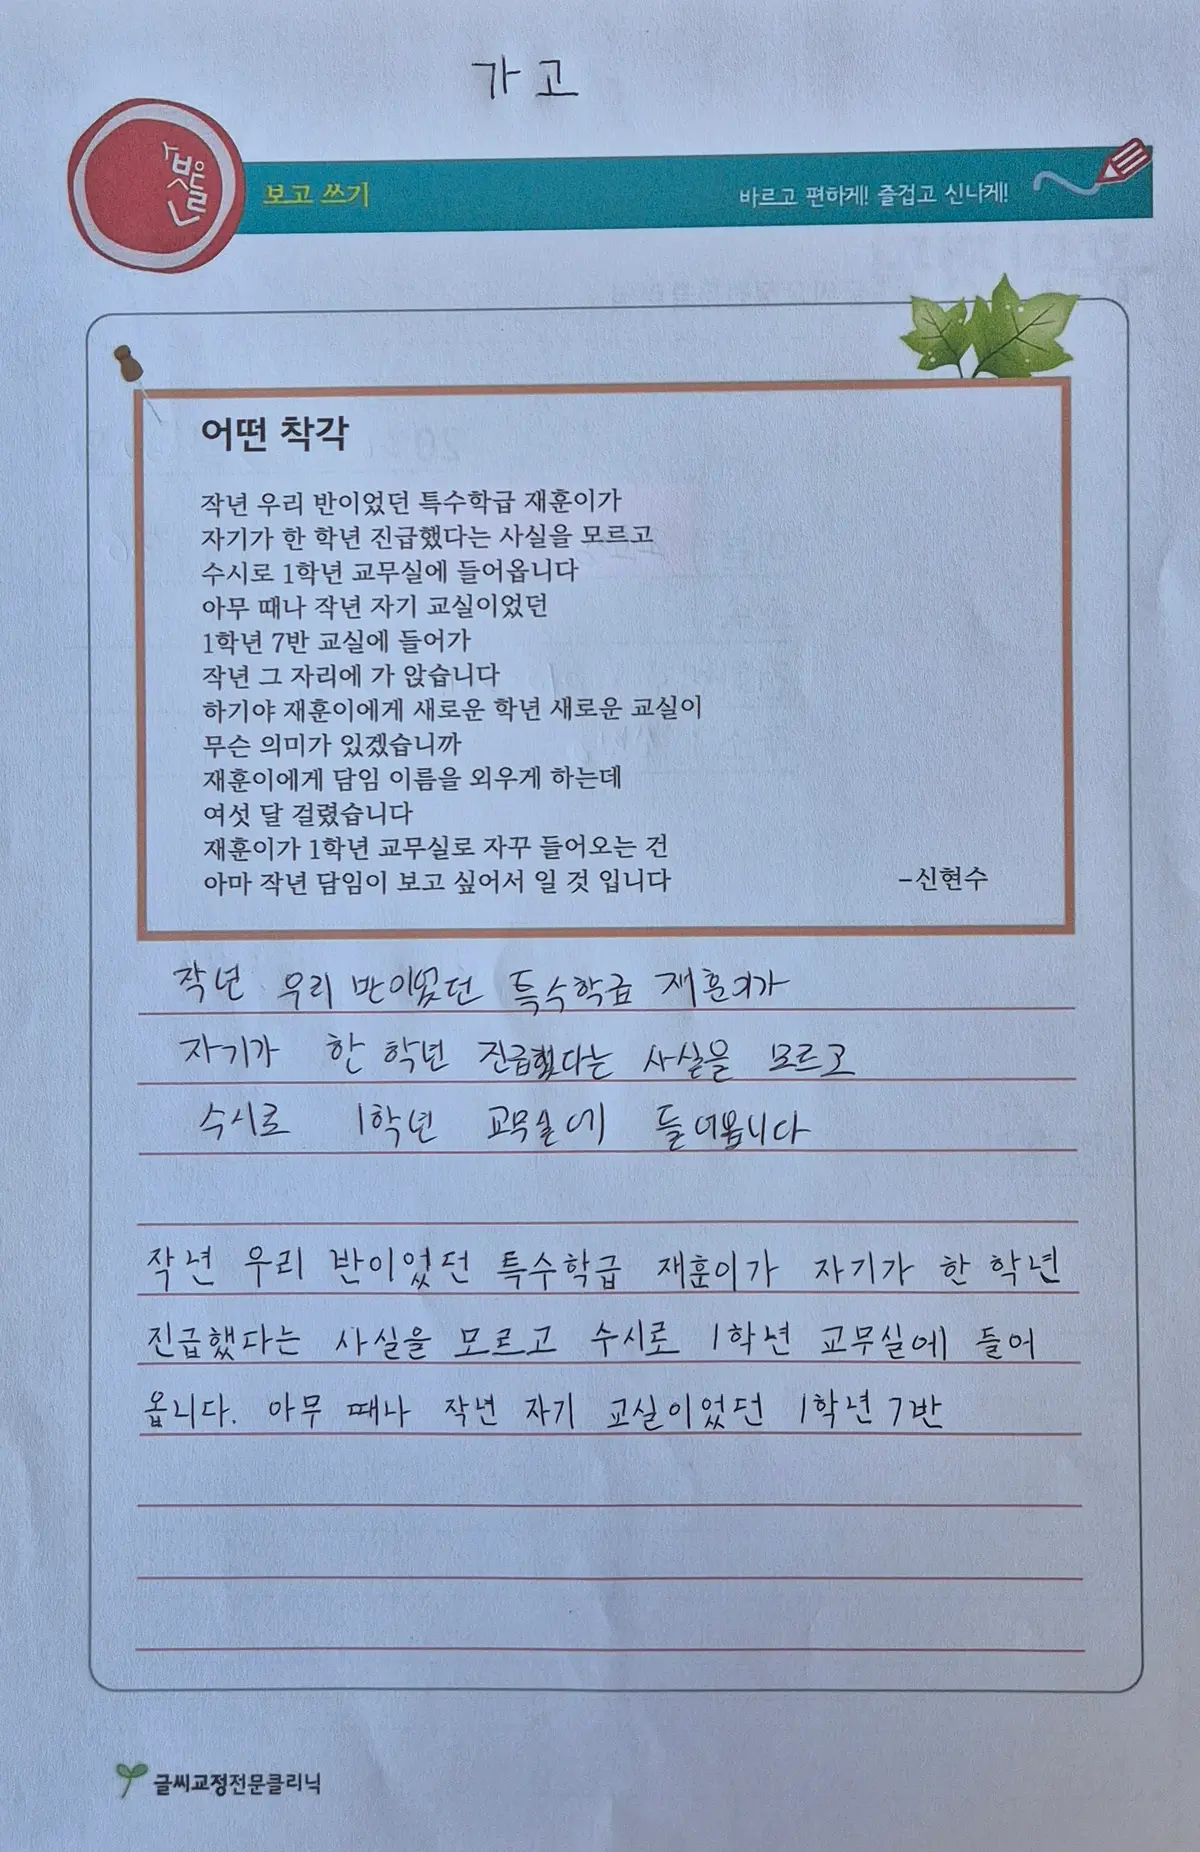 가 고
보고 쓰기
바르고 편하게! 즐겁고 신나게!
어떤 착각
작년 우리 반이었던 특수학급 재훈이가
자기가 한 학년 진급했다는 사실을 모르고
수시로 1학년 교무실에 들어옵니다
아무 때나 작년 자기 교실이었던
1학년 7반 교실에 들어가
작년 그 자리에 가 앉습니다
하기야 재훈이에게 새로운 학년 새로운 교실이
무슨 의미가 있겠습니까
재훈이에게 담임 이름을 외우게 하는데
여섯 달 걸렸습니다
재훈이가 1학년 교무실로 자꾸 들어오는 건
아마 작년 담임이 보고 싶어서 일 것 입니다
-신현수
작년 우리 반이었던 특수학급 재훈이가
자기가 한 학년 진급했다는 사실을 모르고
수시로 1학년 교무실에 들어옵니다
작년 우리 반이었던 특수학급 재훈이가 자기가 한 학년
진급했다는 사실을 모르고 수시로 1학년 교무실에 들어
옵니다. 아무 때나 작년 자기 교실이었던 1학년 7반
글씨교정전문클리닉